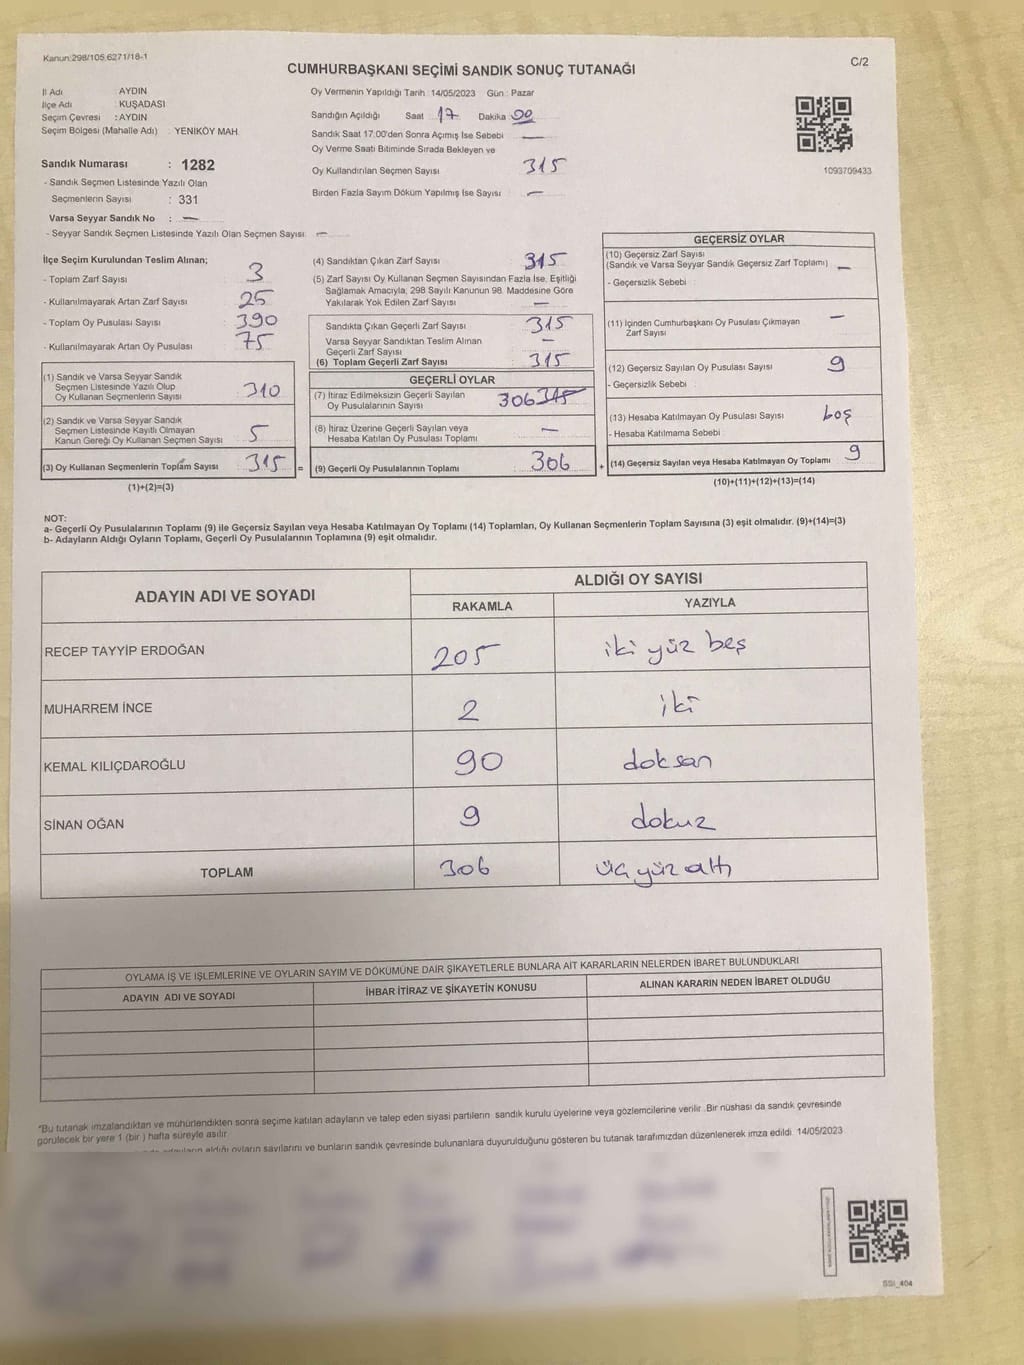 Kanun:298/105,6271/18-1
C/2
CUMHURBAŞKANI SEÇİMİ SANDIK SONUÇ TUTANAĞI
İl Adı : AYDIN
İlçe Adı : KUŞADASI
Seçim Çevresi : AYDIN
Seçim Bölgesi (Mahalle Adı) : YENİKÖY MAH.
Sandık Numarası : 1282
- Sandık Seçmen Listesinde Yazılı Olan
Seçmenlerin Sayısı : 331
Varsa Seyyar Sandık No : —
- Seyyar Sandık Seçmen Listesinde Yazılı Olan Seçmen Sayısı: —
Oy Vermenin Yapıldığı Tarih : 14/05/2023 Gün : Pazar
Sandığın Açıldığı Saat 17 Dakika 00
Sandık Saat 17:00'den Sonra Açımış İse Sebebi —
Oy Verme Saati Bitiminde Sırada Bekleyen ve
Oy Kullandırılan Seçmen Sayısı 315
Birden Fazla Sayım Döküm Yapılmış İse Sayısı —
1093709433
İlçe Seçim Kurulundan Teslim Alınan;
- Toplam Zarf Sayısı 3
- Kullanılmayarak Artan Zarf Sayısı 25
- Toplam Oy Pusulası Sayısı 390
- Kullanılmayarak Artan Oy Pusulası 75
(1) Sandık ve Varsa Seyyar Sandık
Seçmen Listesinde Yazılı Olup
Oy Kullanan Seçmenlerin Sayısı 310
(2) Sandık ve Varsa Seyyar Sandık
Seçmen Listesinde Kayıtlı Olmayan
Kanun Gereği Oy Kullanan Seçmen Sayısı 5
(3) Oy Kullanan Seçmenlerin Toplam Sayısı 315 =
(1)+(2)=(3)
(4) Sandıktan Çıkan Zarf Sayısı 315
(5) Zarf Sayısı Oy Kullanan Seçmen Sayısından Fazla İse, Eşitliği
Sağlamak Amacıyla; 298 Sayılı Kanunun 98. Maddesine Göre
Yakılarak Yok Edilen Zarf Sayısı —
Sandıkta Çıkan Geçerli Zarf Sayısı 315
Varsa Seyyar Sandıktan Teslim Alınan
Geçerli Zarf Sayısı —
(6) Toplam Geçerli Zarf Sayısı 315
GEÇERLİ OYLAR
(7) İtiraz Edilmeksizin Geçerli Sayılan
Oy Pusulalarının Sayısı 306 315
(8) İtiraz Üzerine Geçerli Sayılan veya
Hesaba Katılan Oy Pusulası Toplamı —
(9) Geçerli Oy Pusulalarının Toplamı 306 +
GEÇERSİZ OYLAR
(10) Geçersiz Zarf Sayısı
(Sandık ve Varsa Seyyar Sandık Geçersiz Zarf Toplamı) —
- Geçersizlik Sebebi :
(11) İçinden Cumhurbaşkanı Oy Pusulası Çıkmayan
Zarf Sayısı —
(12) Geçersiz Sayılan Oy Pusulası Sayısı 9
- Geçersizlik Sebebi :
(13) Hesaba Katılmayan Oy Pusulası Sayısı boş
- Hesaba Katılmama Sebebi :
(14) Geçersiz Sayılan veya Hesaba Katılmayan Oy Toplamı 9
(10)+(11)+(12)+(13)=(14)
NOT:
a- Geçerli Oy Pusulalarının Toplamı (9) ile Geçersiz Sayılan veya Hesaba Katılmayan Oy Toplamı (14) Toplamları, Oy Kullanan Seçmenlerin Toplam Sayısına (3) eşit olmalıdır. (9)+(14)=(3)
b- Adayların Aldığı Oyların Toplamı, Geçerli Oy Pusulalarının Toplamına (9) eşit olmalıdır.
ADAYIN ADI VE SOYADI ALDIĞI OY SAYISI
RAKAMLA YAZIYLA
RECEP TAYYİP ERDOĞAN 205 iki yüz beş
MUHARREM İNCE 2 iki
KEMAL KILIÇDAROĞLU 90 doksan
SİNAN OĞAN 9 dokuz
TOPLAM 306 üç yüz altı
OYLAMA İŞ VE İŞLEMLERİNE VE OYLARIN SAYIM VE DÖKÜMÜNE DAİR ŞİKAYETLERLE BUNLARA AİT KARARLARIN NELERDEN İBARET BULUNDUKLARI
ADAYIN ADI VE SOYADI İHBAR İTİRAZ VE ŞİKAYETİN KONUSU ALINAN KARARIN NEDEN İBARET OLDUĞU
*Bu tutanak imzalandıktan ve mühürlendikten sonra seçime katılan adayların ve talep eden siyasi partilerin sandık kurulu üyelerine veya gözlemcilerine verilir. Bir nüshası da sandık çevresinde
görülecek bir yere 1 (bir) hafta süreyle asılır.
aldığı oyların sayılarını ve bunların sandık çevresinde bulunanlara duyurulduğunu gösteren bu tutanak tarafımızdan düzenlenerek imza edildi. 14/05/2023
SSI_404